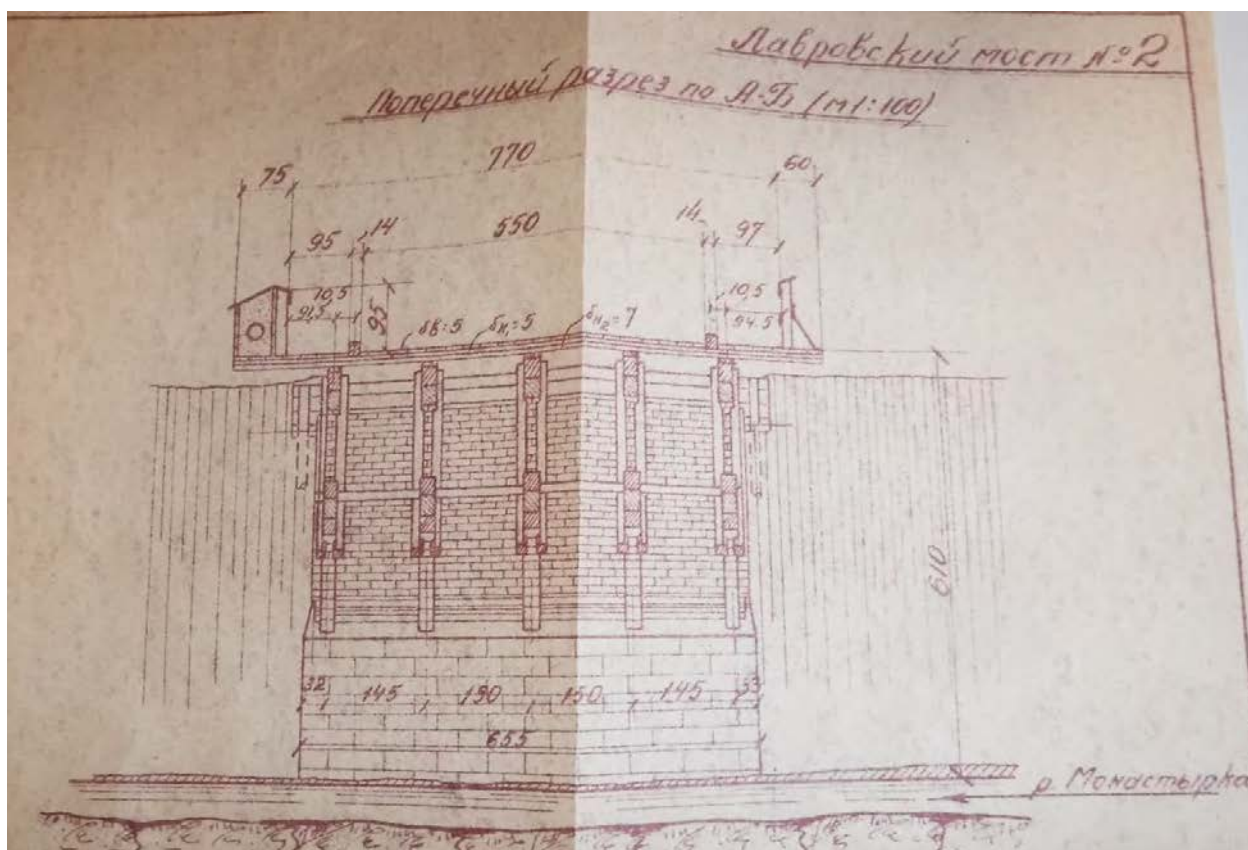 Лавровский мост №2
Поперечный разрез по А-Б (м 1:100)
75 770 60
95 14 550 14 97
10,5 10,5
91,5 95 94.5
бв=5 бн₁=5 бн₂=7
610
32 145 150 145 33
655
р. Монастырка